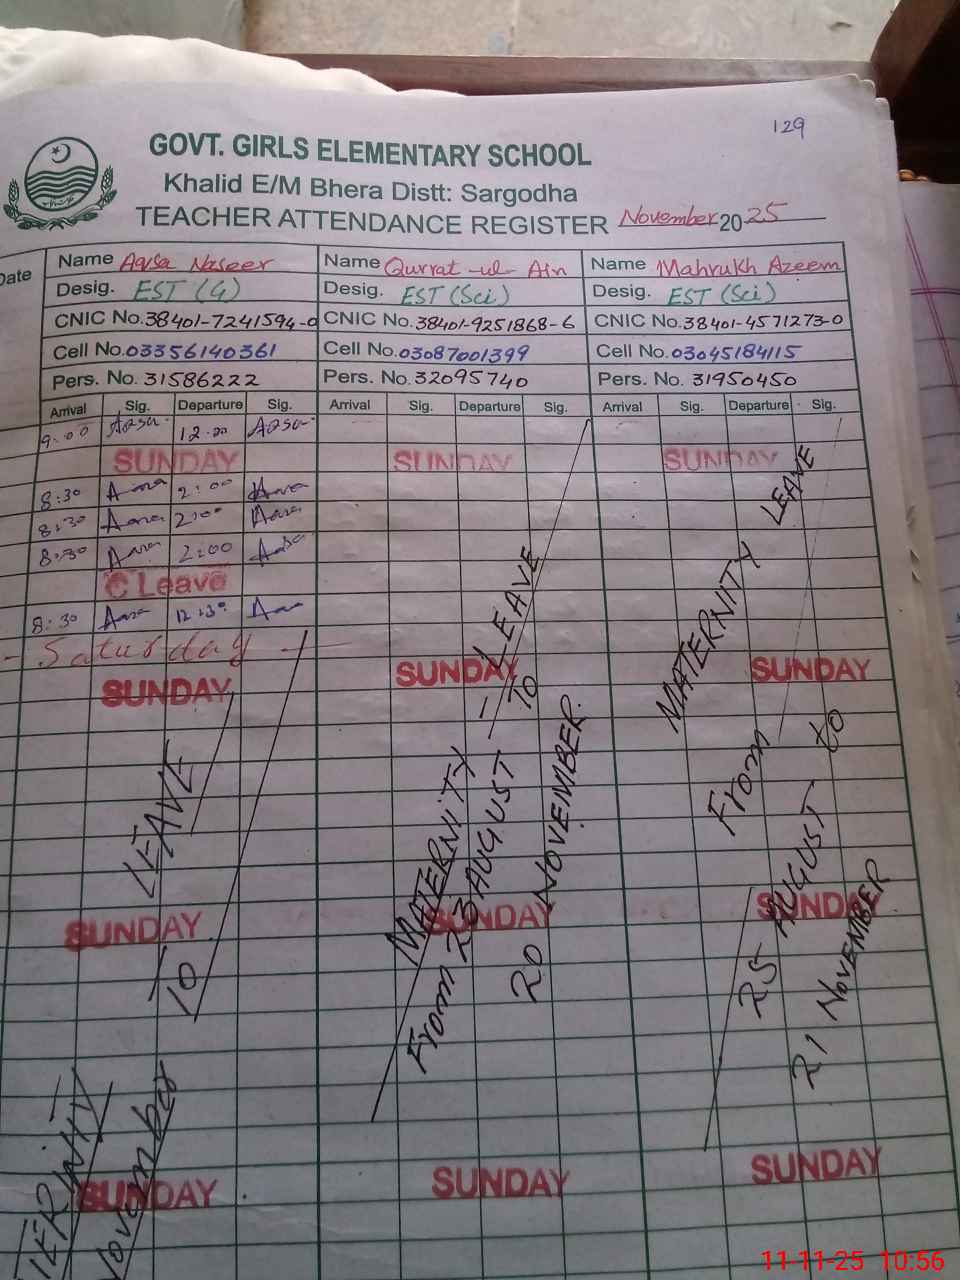 129
GOVT. GIRLS ELEMENTARY SCHOOL
Khalid E/M Bhera Distt: Sargodha
TEACHER ATTENDANCE REGISTER November 2025
Date
Name Aqsa Naseer Name Qurrat-ul-Ain Name Mahrukh Azeem
Desig. EST (G) Desig. EST (Sci) Desig. EST (Sci)
CNIC No. 38401-7241594-0 CNIC No. 38401-9251868-6 CNIC No. 38401-4571273-0
Cell No. 03356140361 Cell No. 03087001399 Cell No. 03045184115
Pers. No. 31586222 Pers. No. 32095740 Pers. No. 31950450
Arrival Sig. Departure Sig. Arrival Sig. Departure Sig. Arrival Sig. Departure Sig.
9:00 Aqsa 12:00 Aqsa
SUNDAY SUNDAY SUNDAY
8:30 2:00
8:30 2:00
8:30 2:00
C Leave
8:30 12:30
- Saturday -
SUNDAY SUNDAY SUNDAY
SUNDAY SUNDAY SUNDAY
SUNDAY SUNDAY SUNDAY
LEAVE
10
November
MATERNITY - LEAVE
From 23 AUGUST TO
20 NOVEMBER
MATERNITY LEAVE
From to
25 AUGUST
21 NOVEMBER
11-11-25 10:56